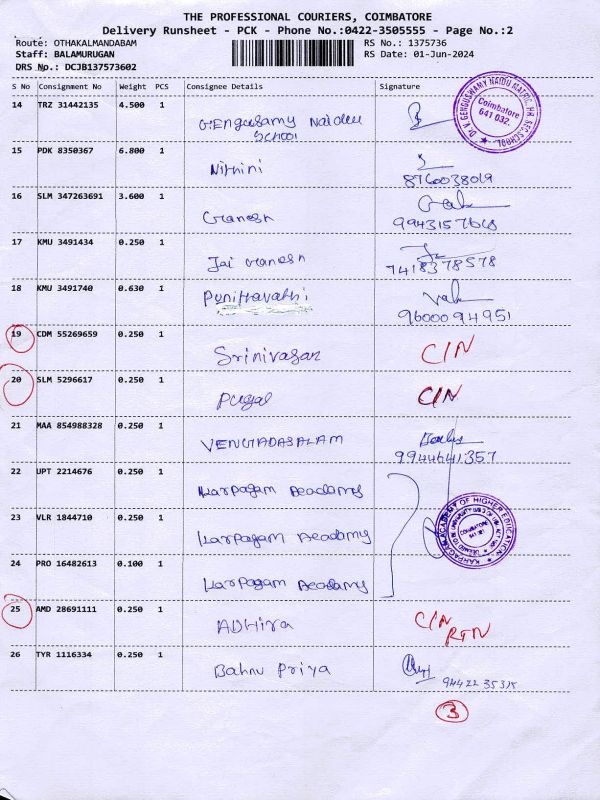 THE PROFESSIONAL COURIERS, COIMBATORE
Delivery Runsheet - PCK - Phone No.:0422-3505555 - Page No.:2
Route: OTHAKALMANDABAM RS No.: 1375736
Staff: BALAMURUGAN RS Date: 01-Jun-2024
DRS No.: DCJB137573602
S No Consignment No Weight PCS Consignee Details Signature
14 TRZ 31442135 4.500 1 G.Engusamy Naidu
School
Coimbatore
641 032.
15 PDK 8350367 6.800 1 Nithini
8760038019
16 SLM 347263691 3.600 1 Ganesh
9943157668
17 KMU 3491434 0.250 1 Jai Ganesh
7418378578
18 KMU 3491740 0.630 1 Punithavathi
9600094951
19 CDM 55269659 0.250 1 Srinivasan C/N
20 SLM 5296617 0.250 1 Pugal C/N
21 MAA 854988328 0.250 1 VENGADASALAM
9944641357
22 UPT 2214676 0.250 1 Karpagam Acadamy
23 VLR 1844710 0.250 1 Karpagam Acadamy
KARPAGAM ACADEMY OF HIGHER EDUCATION
COIMBATORE
24 PRO 16482613 0.100 1 Karpagam Acadamy
25 AMD 28691111 0.250 1 ADHIRA C/N
RTN
26 TYR 1116334 0.250 1 Bahnu Priya
3